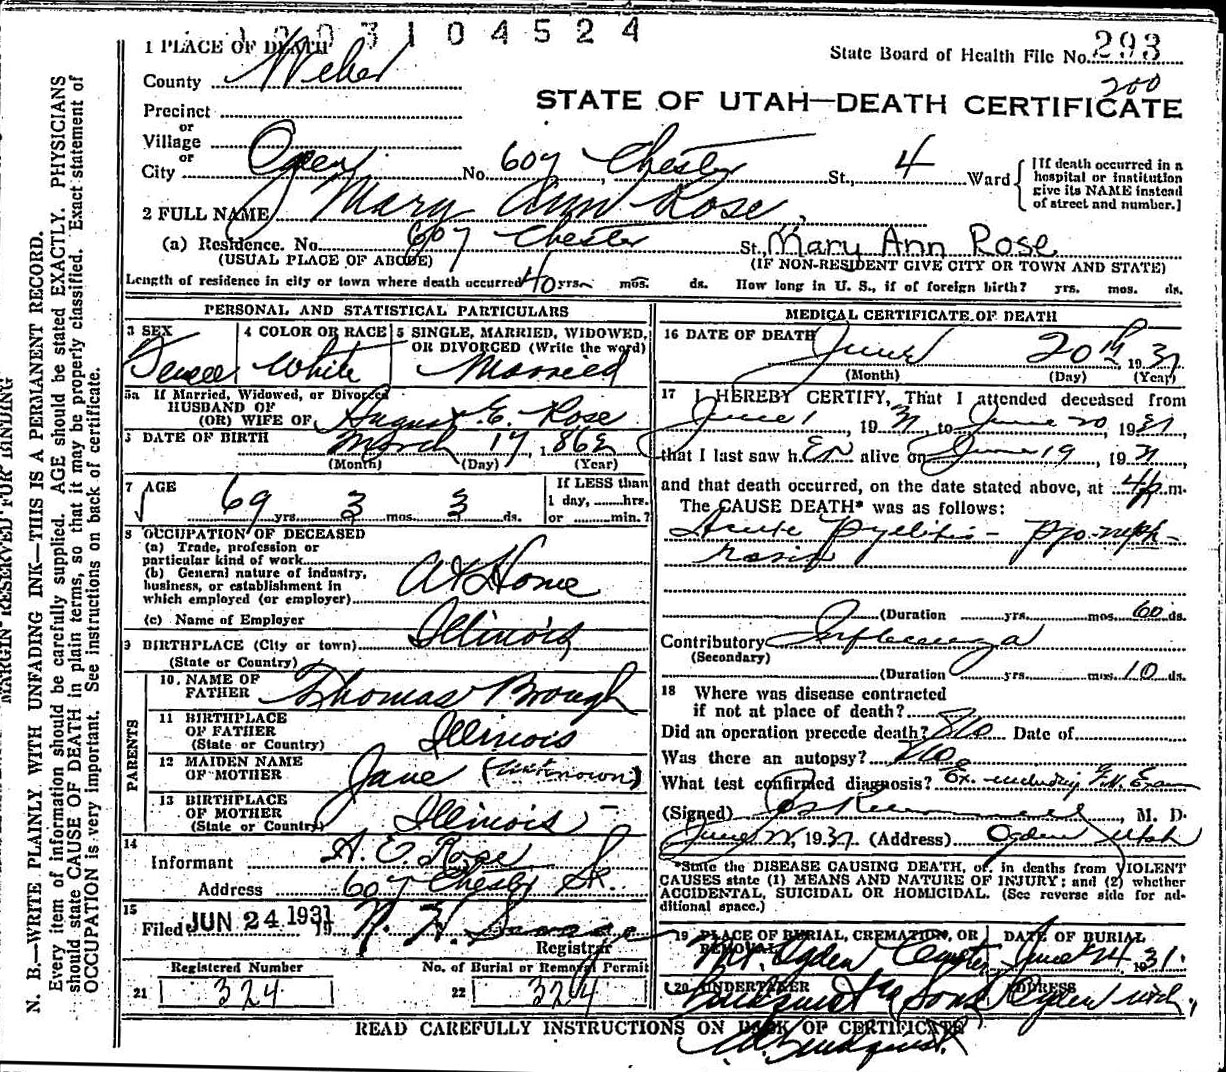 1003104524
1 PLACE OF DEATH
State Board of Health File No. 293
County Weber
200
STATE OF UTAH—DEATH CERTIFICATE
Precinct
or
Village
or
City Ogden No. 607 Chester St., 4 Ward
[If death occurred in a hospital or institution give its NAME instead of street and number.]
2 FULL NAME Mary Ann Rose
(a) Residence. No. 607 Chester St. Mary Ann Rose
(USUAL PLACE OF ABODE) (IF NON-RESIDENT GIVE CITY OR TOWN AND STATE)
Length of residence in city or town where death occurred 40 yrs. mos. ds. How long in U. S., if of foreign birth? yrs. mos. ds.
PERSONAL AND STATISTICAL PARTICULARS
3 SEX
4 COLOR OR RACE
5 SINGLE, MARRIED, WIDOWED, OR DIVORCED (Write the word)
Female White Married
5a If Married, Widowed, or Divorced
HUSBAND OF
(OR) WIFE OF August E. Rose
6 DATE OF BIRTH March 17, 1862
(Month) (Day) (Year)
7 AGE
69 yrs. 3 mos. 3 ds.
If LESS than 1 day, ......hrs. or ......min.?
8 OCCUPATION OF DECEASED
(a) Trade, profession or particular kind of work
(b) General nature of industry, business, or establishment in which employed (or employer)
At Home
(c) Name of Employer
9 BIRTHPLACE (City or town) Illinois
(State or Country)
PARENTS
10. NAME OF FATHER Thomas Brough
11 BIRTHPLACE OF FATHER (State or Country) Illinois
12 MAIDEN NAME OF MOTHER Jane (unknown)
13 BIRTHPLACE OF MOTHER (State or Country) Illinois
14
Informant A. E. Rose
Address 607 Chester St.
15
Filed JUN 24 1931 19
Registrar
Registered Number
21 324
No. of Burial or Removal Permit
22 324
MEDICAL CERTIFICATE OF DEATH
16 DATE OF DEATH June 20th 1931
(Month) (Day) (Year)
17 I HEREBY CERTIFY, That I attended deceased from
June 1, 1931 to June 20, 1931,
that I last saw her alive on June 19, 1931
and that death occurred, on the date stated above, at 4 p m.
The CAUSE DEATH* was as follows:
Acute Pyelitis - Pyo-neph-
rosis
(Duration yrs. mos. 60 ds.
Contributory Influenza
(Secondary)
(Duration yrs. mos. 10 ds.
18 Where was disease contracted
if not at place of death?
Did an operation precede death? No Date of
Was there an autopsy? No
What test confirmed diagnosis? Ex. including
(Signed) , M. D.
June 22, 1931 (Address) Ogden Utah
*State the DISEASE CAUSING DEATH, or, in deaths from VIOLENT CAUSES state (1) MEANS AND NATURE OF INJURY; and (2) whether ACCIDENTAL, SUICIDAL OR HOMICIDAL. (See reverse side for additional space.)
19 PLACE OF BURIAL, CREMATION, OR REMOVAL
DATE OF BURIAL
Mt. Ogden June 24 1931.
20 UNDERTAKER ADDRESS
Lindquist & Sons Ogden Utah,
READ CAREFULLY INSTRUCTIONS ON BACK OF CERTIFICATE
Lindquist
MARGIN RESERVED FOR BINDING
N. B.—WRITE PLAINLY WITH UNFADING INK—THIS IS A PERMANENT RECORD.
Every item of information should be carefully supplied. AGE should be stated EXACTLY. PHYSICIANS
should state CAUSE OF DEATH in plain terms, so that it may be properly classified. Exact statement of
OCCUPATION is very important. See instructions on back of certificate.